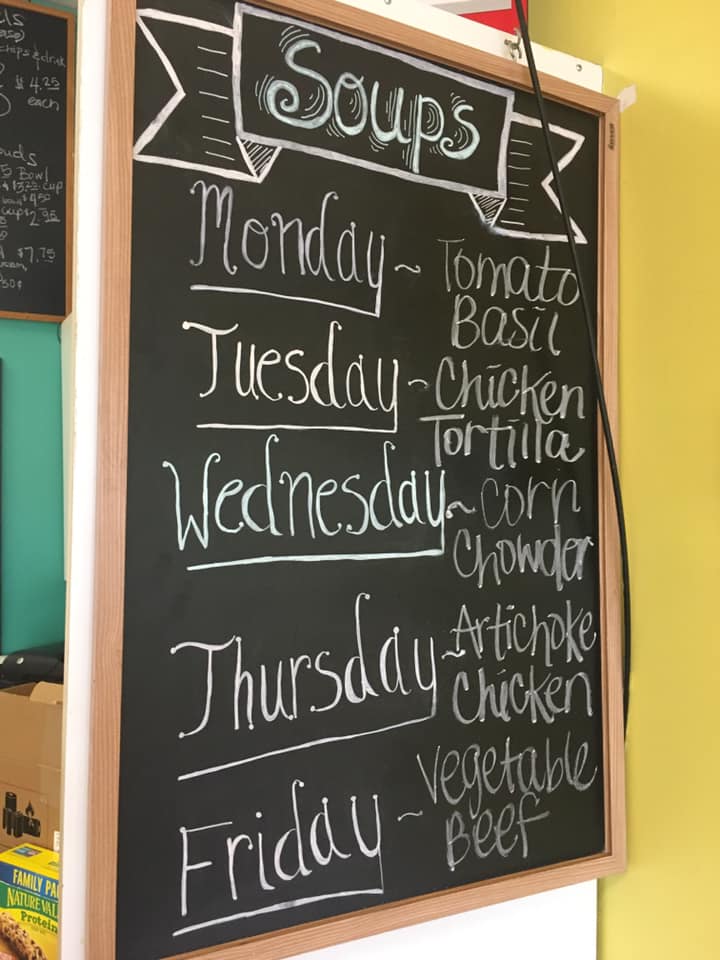 chips & drink
$4.25
each
Bowl
Cup
$7.75
Soups
Monday ~ Tomato
Basil
Tuesday ~ Chicken
Tortilla
Wednesday ~ Corn
Chowder
Thursday ~ Artichoke
Chicken
Friday ~ Vegetable
Beef
FAMILY
NATURE VAL
Protein